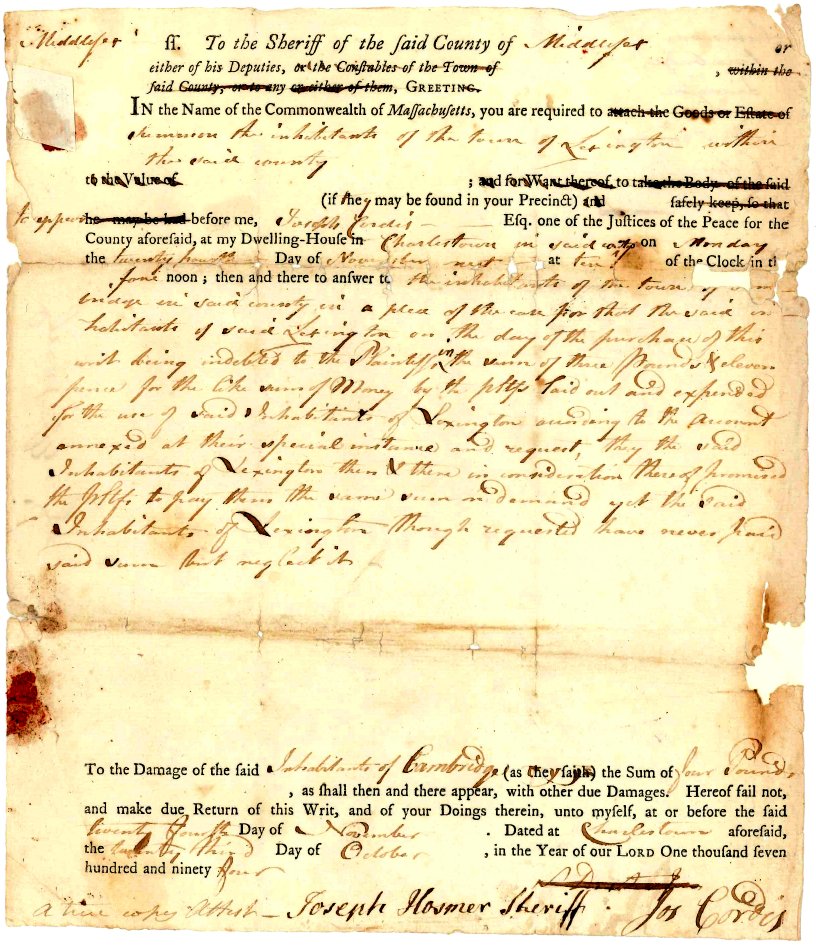 Middlesex ſſ. To the Sheriff of the ſaid County of Middlesex or
either of his Deputies, or the Conſtables of the Town of , within the
ſaid County, or to any or either of them, GREETING.
IN the Name of the Commonwealth of Maſſachuſetts, you are required to attach the Goods or Eſtate of
summon the inhabitants of the town of Lexington within
the said county
to the Value of ; and for Want thereof, to take the Body of the ſaid
(if they may be found in your Precinct) and ſafely keep, ſo that
to appear he may be had before me, Joseph Cordis Eſq. one of the Juſtices of the Peace for the
County aforeſaid, at my Dwelling-Houſe in Charlestown in said on Monday
the twenty fourth Day of November next at ten of the Clock in the
fore noon ; then and there to anſwer to the inhabitants of the town of Cam
bridge in said county in a plea of the case for that the said in
habitants of said Lexington on the day of the purchase of this
writ being indebted to the Plaintiffs in the sum of three Pounds & eleven
pence for the like sum of Money by the pltfs laid out and expended
for the use of said Inhabitants of Lexington according to the account
annexed at their special instance and request, they the said
Inhabitants of Lexington then & there in consideration thereof promised
the pltfs to pay them the same sum on demand yet the said
Inhabitants of Lexington though requested have never paid
said sum but neglect it
To the Damage of the ſaid Inhabitants of Cambridge (as they ſay) the Sum of four Pounds
, as ſhall then and there appear, with other due Damages. Hereof fail not,
and make due Return of this Writ, and of your Doings therein, unto myſelf, at or before the ſaid
twenty fourth Day of November . Dated at Charlestown aforeſaid,
the twenty third Day of October , in the Year of our LORD One thouſand ſeven
hundred and ninety four
A true copy Attest – Joseph Hosmer Sheriff Jos Cordis